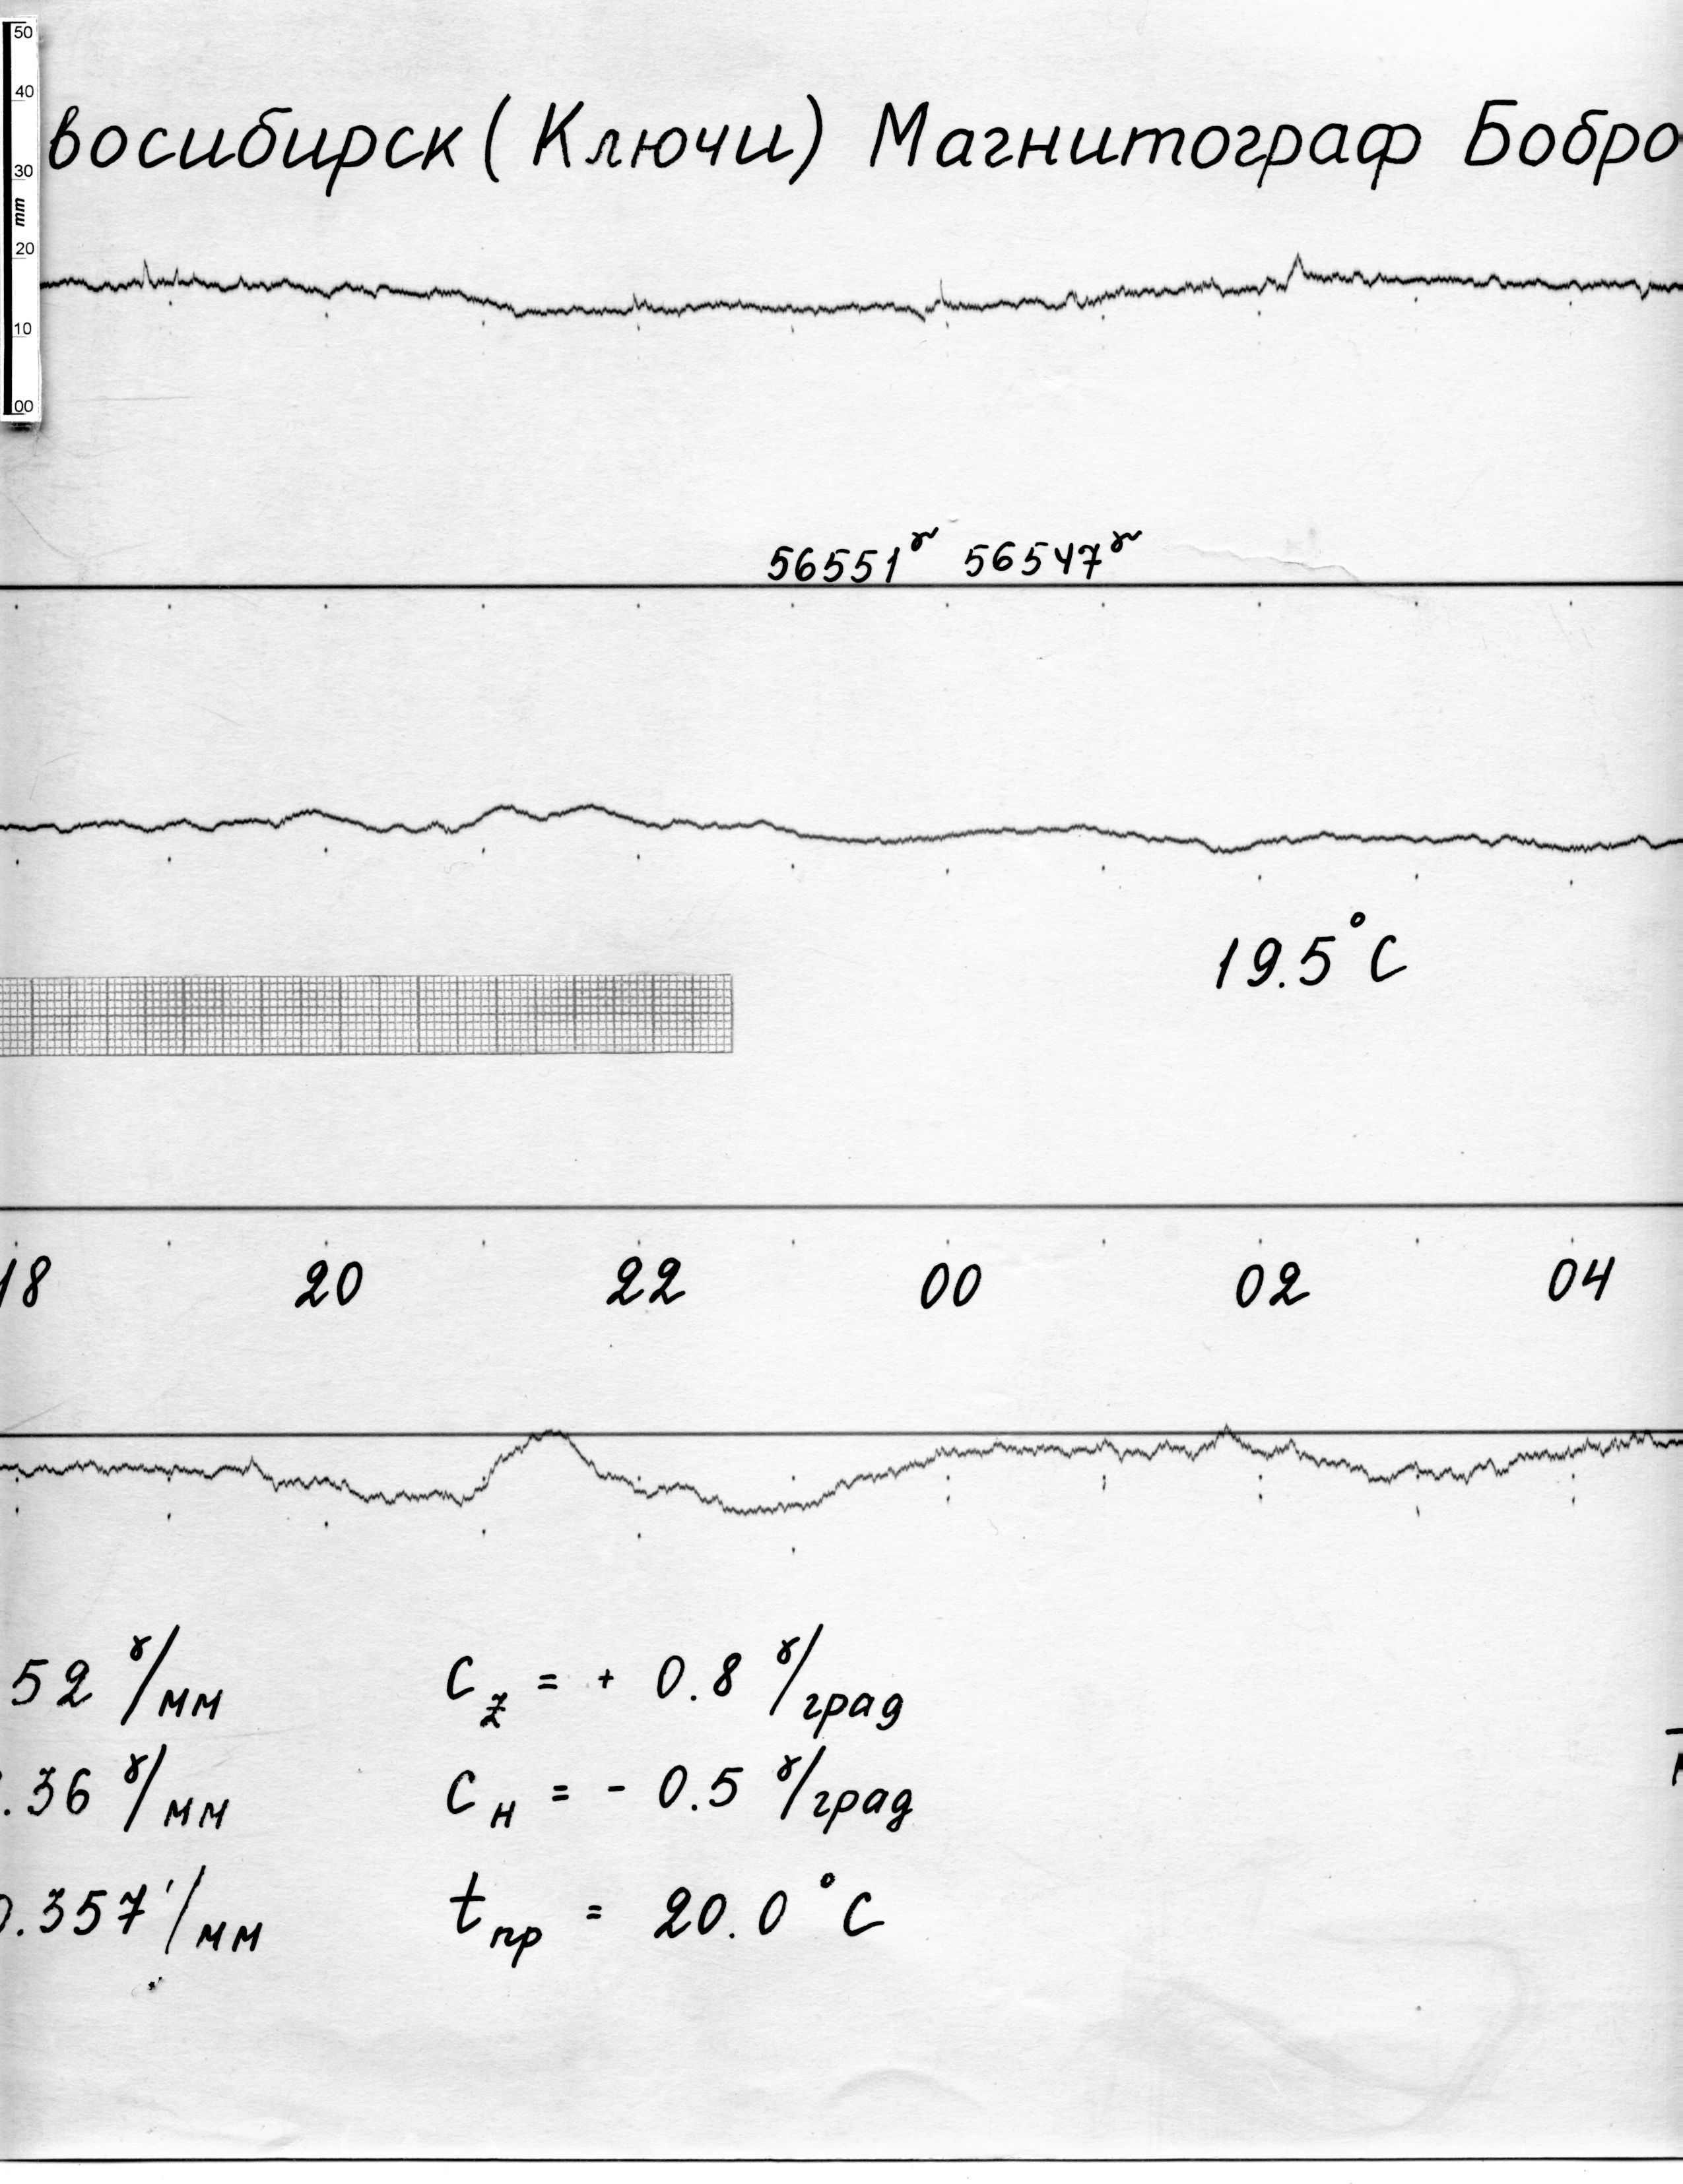 50
40
30
mm
20
10
00
восибирск (Ключи) Магнитограф Бобро
56551ᵞ 56547ᵞ
19.5°C
18 20 22 00 02 04
52 ᵞ/мм C_z = + 0.8 ᵞ/град
.36 ᵞ/мм C_H = - 0.5 ᵞ/град
0.357'/мм t_пр = 20.0 °C